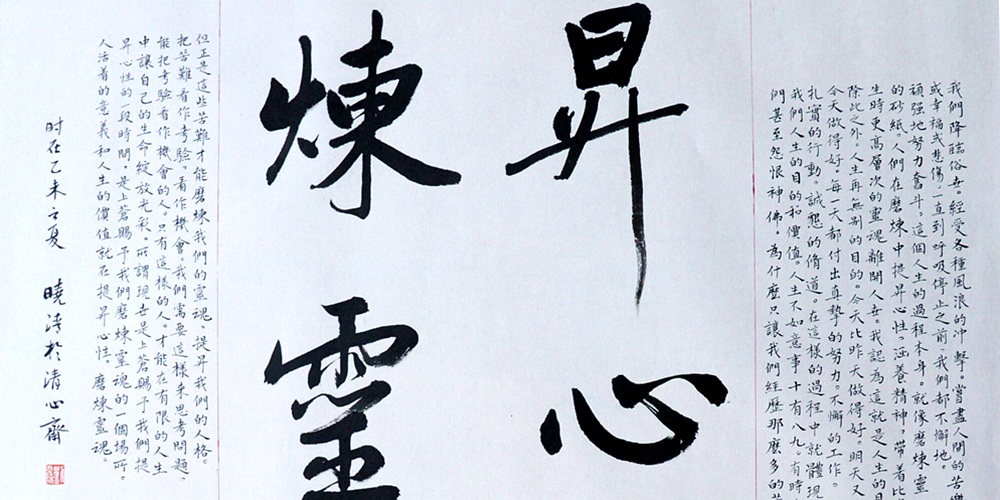 我們降臨俗世。經受各種風浪的沖擊。嘗盡人間的苦樂
或幸福或悲傷。一直到呼吸停止之前。我們都不懈地。
頑強地努力奮斗。這個人生的過程本身。就像磨煉靈
的砂紙。人們在磨煉中提昇心性。涵養精神。帶着比
生時更高層次的靈魂離開人世。我認為這就是人生的
除此之外。人生再無別的目的。今天比昨天做得好。明天又
今天做得好。每一天都付出真摯的努力。不懈的工作。
扎實的行動。誠懇的脩道。在這樣的過程中就體現
我們人生的目的和價值。人生不如意事十有八九。有時
們甚至怨恨神佛。為什麼只讓我們經歷那麼多的苦
昇心
煉靈
但正是這些苦難才能磨煉我們的靈魂。提昇我們的人格。
把苦難看作考驗。看作機會。我們需要這樣來思考問題。
能把考驗看作機會的人。只有這樣的人。才能在有限的人生
中讓自己的生命綻放光彩。所謂現世是上蒼賜予我們提
昇心性的一段時間。是上蒼賜予我們磨煉靈魂的一個場所。
人活着的意義和人生的價值就在提昇心性。磨煉靈魂。
时在乙未之夏 曉濤於清心齋